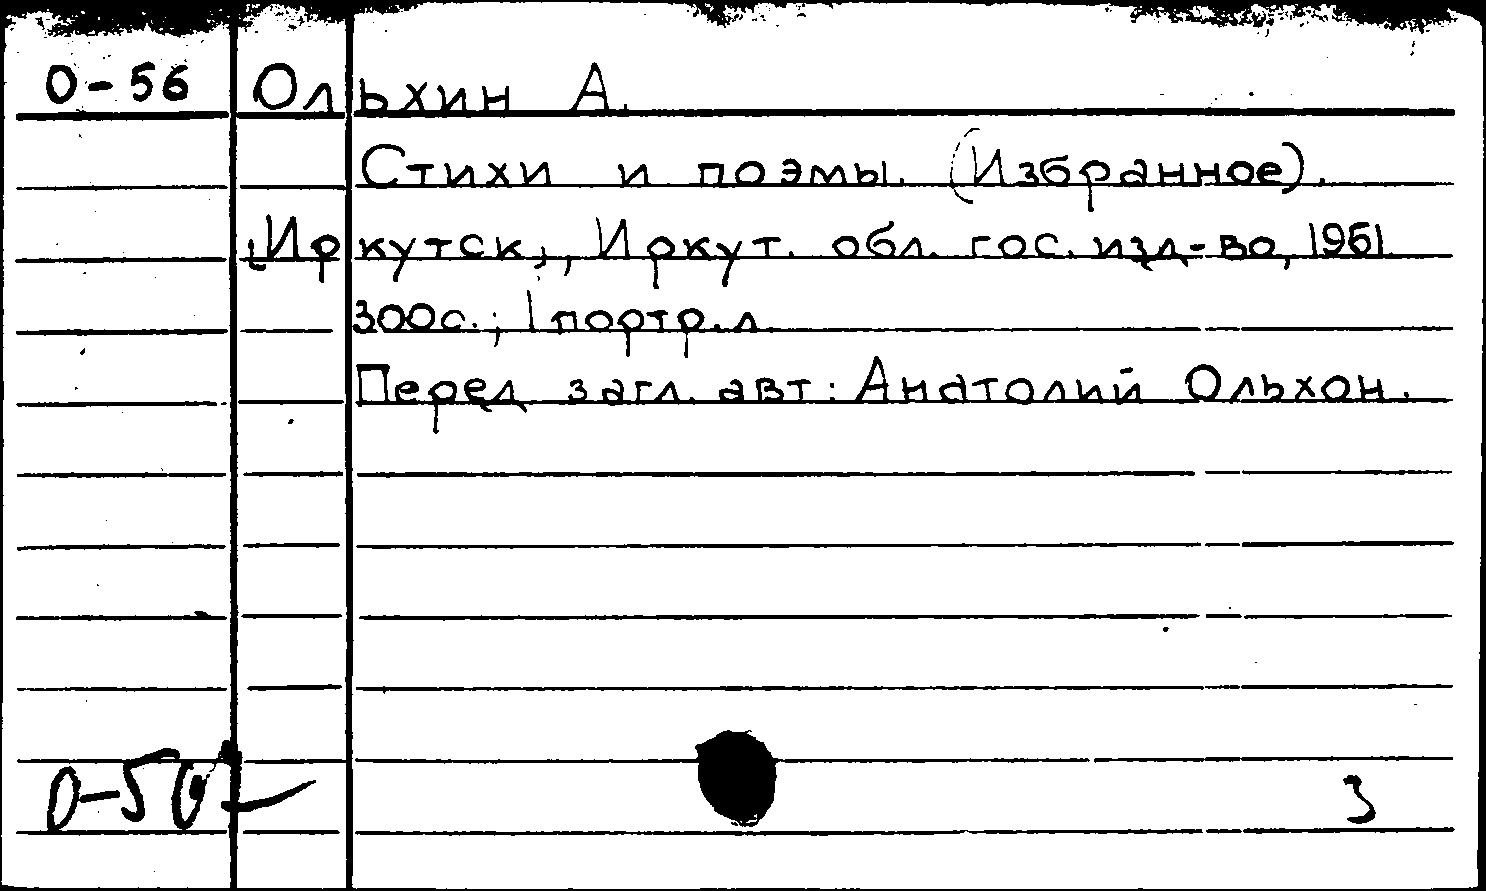 О-56 Ольхин А.
Стихи и поэмы. (Избранное).
[Иркутск], Иркут. обл. гос. изд-во, 1961.
300с.; 1 портр. л.
Перед загл. авт: Анатолий Ольхон.
О-50
3